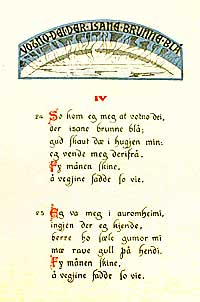 VOTNO·DEI·DER·ISANE·BRUNNE·BLA
IV
24 So kom eg meg at votno dei,
der isane brunne blå;
gud skaut dæ i hugjen min:
eg vende meg derifrå.
Fy månen skine,
å vegjine fadde so vie.
25 Eg va meg i auromheimi,
ingjen der eg kjende,
berre ho sæle gumor mi
mæ rauve gull på hendi.
Fy månen skine,
å vegjine fadde so vie.